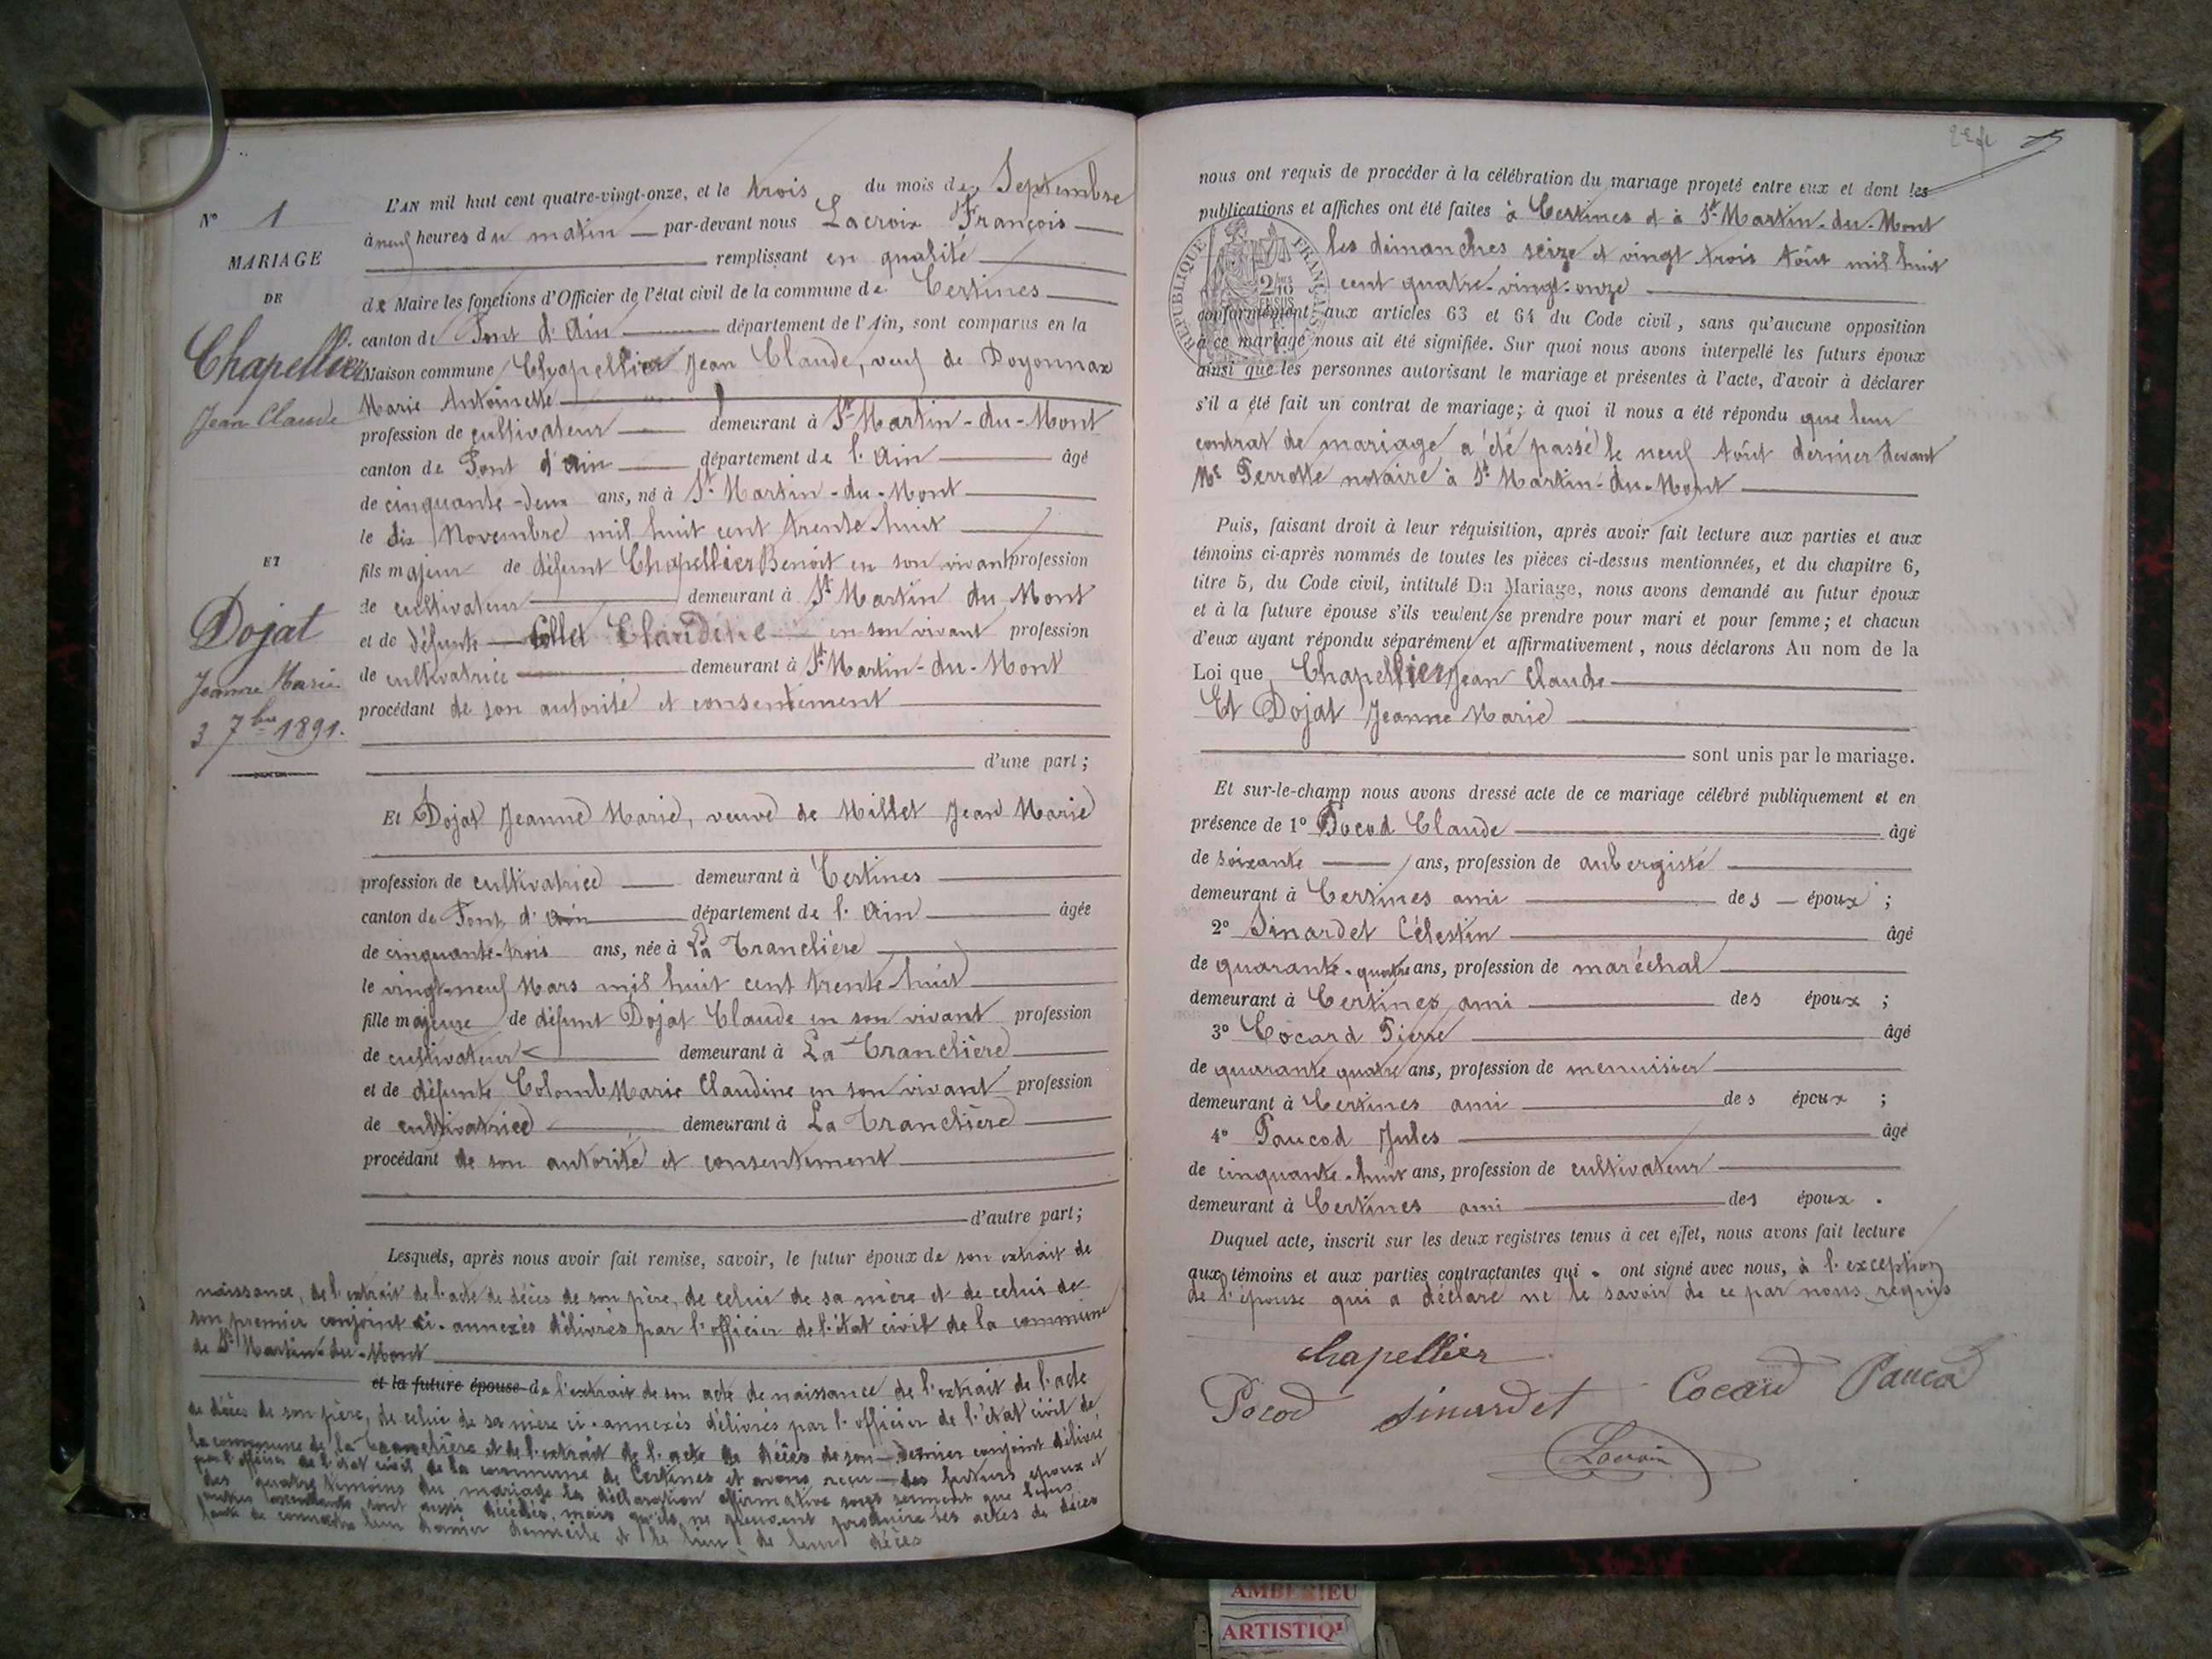 N° 1
MARIAGE
DE
Chapellier
Jean Claude
ET
Dojat
Jeanne Marie
3 7bre 1891.
L'AN mil huit cent quatre-vingt-onze, et le trois du mois de Septembre
à neuf heures du matin par-devant nous Lacroix François
remplissant en qualité
de Maire les fonctions d'Officier de l'état civil de la commune de Certines
canton de Pont d'Ain département de l'Ain, sont comparus en la
Maison commune Chapellier Jean Claude, veuf de Doyonnax
Marie Antoinette
profession de cultivateur demeurant à St Martin-du-Mont
canton de Pont d'Ain département de l'Ain âgé
de cinquante-deux ans, né à St Martin-du-Mont
le dix Novembre mil huit cent trente huit
fils majeur de défunt Chapellier Benoit en son vivant profession
de cultivateur demeurant à St Martin du Mont
et de défunte Collet Claudine en son vivant profession
de cultivatrice demeurant à St Martin-du-Mont
procédant de son autorité et consentement
d'une part;
Et Dojat Jeanne Marie, veuve de Millet Jean Marie
profession de cultivatrice demeurant à Certines
canton de Pont d'Ain département de l'Ain âgée
de cinquante-trois ans, née à La Tranclière
le vingt-neuf Mars mil huit cent trente huit
fille majeure de défunt Dojat Claude en son vivant profession
de cultivateur demeurant à La Tranclière
et de défunte Colomb Marie Claudine en son vivant profession
de cultivatrice demeurant à La Tranclière
procédant de son autorité et consentement
d'autre part;
Lesquels, après nous avoir fait remise, savoir, le futur époux de son extrait de
naissance, de l'extrait de l'acte de décès de son père, de celui de sa mère et de celui de
son premier conjoint ci-annexés délivrés par l'officier de l'état civil de la commune
de St Martin-du-Mont
et la future épouse de l'extrait de son acte de naissance de l'extrait de l'acte
de décès de son père, de celui de sa mère ci-annexés délivrés par l'officier de l'état civil de
la commune de la Tranclière et de l'extrait de l'acte de décès de son dernier conjoint délivré
par l'officier de l'état civil de la commune de Certines et avons reçu des futurs époux et
des quatre témoins du mariage la déclaration affirmative sous serment que leurs
autres ascendants sont aussi décédés, mais qu'ils ne peuvent produire les actes de décès
faute de connaitre leur dernier domicile et le lieu de leur décès
2e f
nous ont requis de procéder à la célébration du mariage projeté entre eux et dont les
publications et affiches ont été faites à Certines et à St Martin-du-Mont
les dimanches seize et vingt trois Août mil huit
cent quatre-vingt-onze
RÉPUBLIQUE FRANÇAISE
2/10 EN SUS
conformément aux articles 63 et 64 du Code civil, sans qu'aucune opposition
à ce mariage nous ait été signifiée. Sur quoi nous avons interpellé les futurs époux
ainsi que les personnes autorisant le mariage et présentes à l'acte, d'avoir à déclarer
s'il a été fait un contrat de mariage; à quoi il nous a été répondu que leur
contrat de mariage a été passé le neuf Août dernier devant
Me Perrotte notaire à St Martin-du-Mont
Puis, faisant droit à leur réquisition, après avoir fait lecture aux parties et aux
témoins ci-après nommés de toutes les pièces ci-dessus mentionnées, et du chapitre 6,
titre 5, du Code civil, intitulé Du Mariage, nous avons demandé au futur époux
et à la future épouse s'ils veulent se prendre pour mari et pour femme; et chacun
d'eux ayant répondu séparément et affirmativement, nous déclarons Au nom de la
Loi que Chapellier Jean Claude
Et Dojat Jeanne Marie
sont unis par le mariage.
Et sur-le-champ nous avons dressé acte de ce mariage célébré publiquement et en
présence de 1° Pocod Claude âgé
de soixante ans, profession de aubergiste
demeurant à Certines ami des époux;
2° Sinardet Célestin âgé
de quarante-quatre ans, profession de maréchal
demeurant à Certines ami des époux;
3° Cocard Pierre âgé
de quarante quatre ans, profession de menuisier
demeurant à Certines ami des époux;
4° Paucod Jules âgé
de cinquante-huit ans, profession de cultivateur
demeurant à Certines ami des époux.
Duquel acte, inscrit sur les deux registres tenus à cet effet, nous avons fait lecture
aux témoins et aux parties contractantes qui ont signé avec nous, à l'exception
de l'épouse qui a déclaré ne le savoir de ce par nous requis
chapellier
Pocod sinardet Cocard Paucod
Lacroix
AMBERIEU
ARTISTIQ